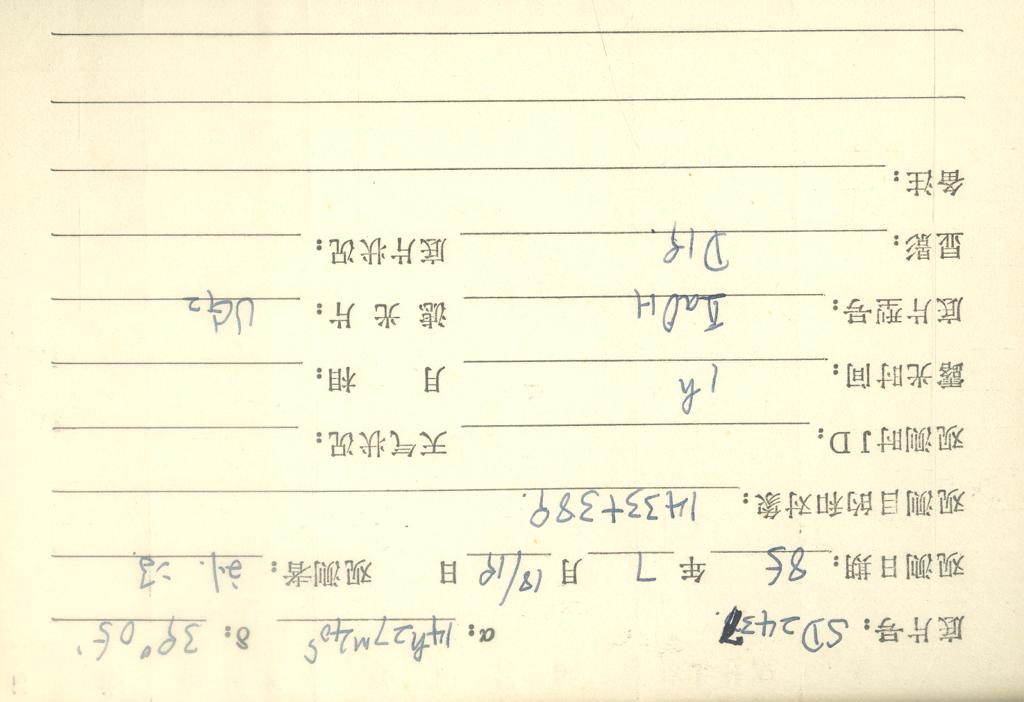 底片号: SD2437. α: 14h27m40s δ: 39°05'
观测日期: 85 年 7 月 18/19 日 观测者:
观测目的和对象: 1433+389.
观测时JD: 天气状况:
露光时间: 1h 月 相:
底片型号: IIaOH 滤 光 片: UG2
显影: D19. 底片状况:
备注: